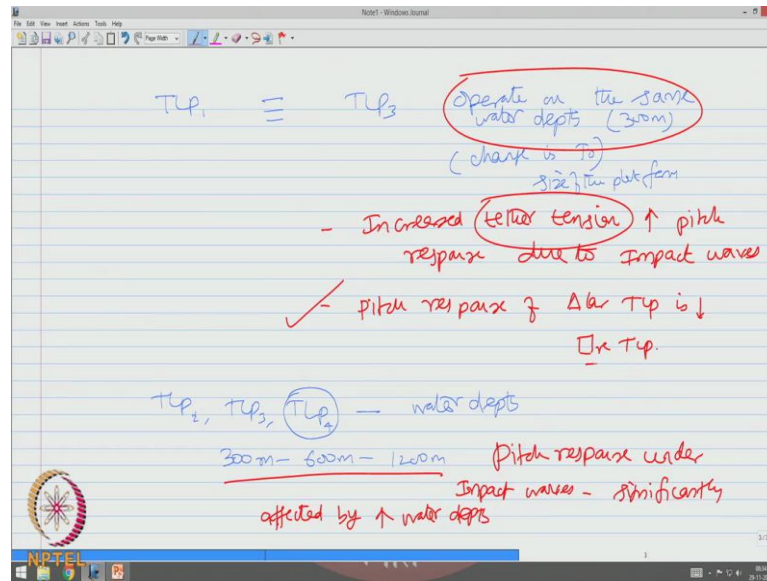 Note1 - Windows Journal
File Edit View Insert Actions Tools Help
Page Width
TLP1 ≡ TLP3 operate on the same
water depts (300m)
(change is T0)
size of the platform
- Increased tether tension ↑ pitch
response due to Impact waves
- pitch response of Δlar TLP is ↓
□re TLP.
TLP2, TLP3, TLP4 — water depts
300m - 600m - 1200m
Pitch response under
Impact waves - significantly
affected by ↑ water depts
NPTEL